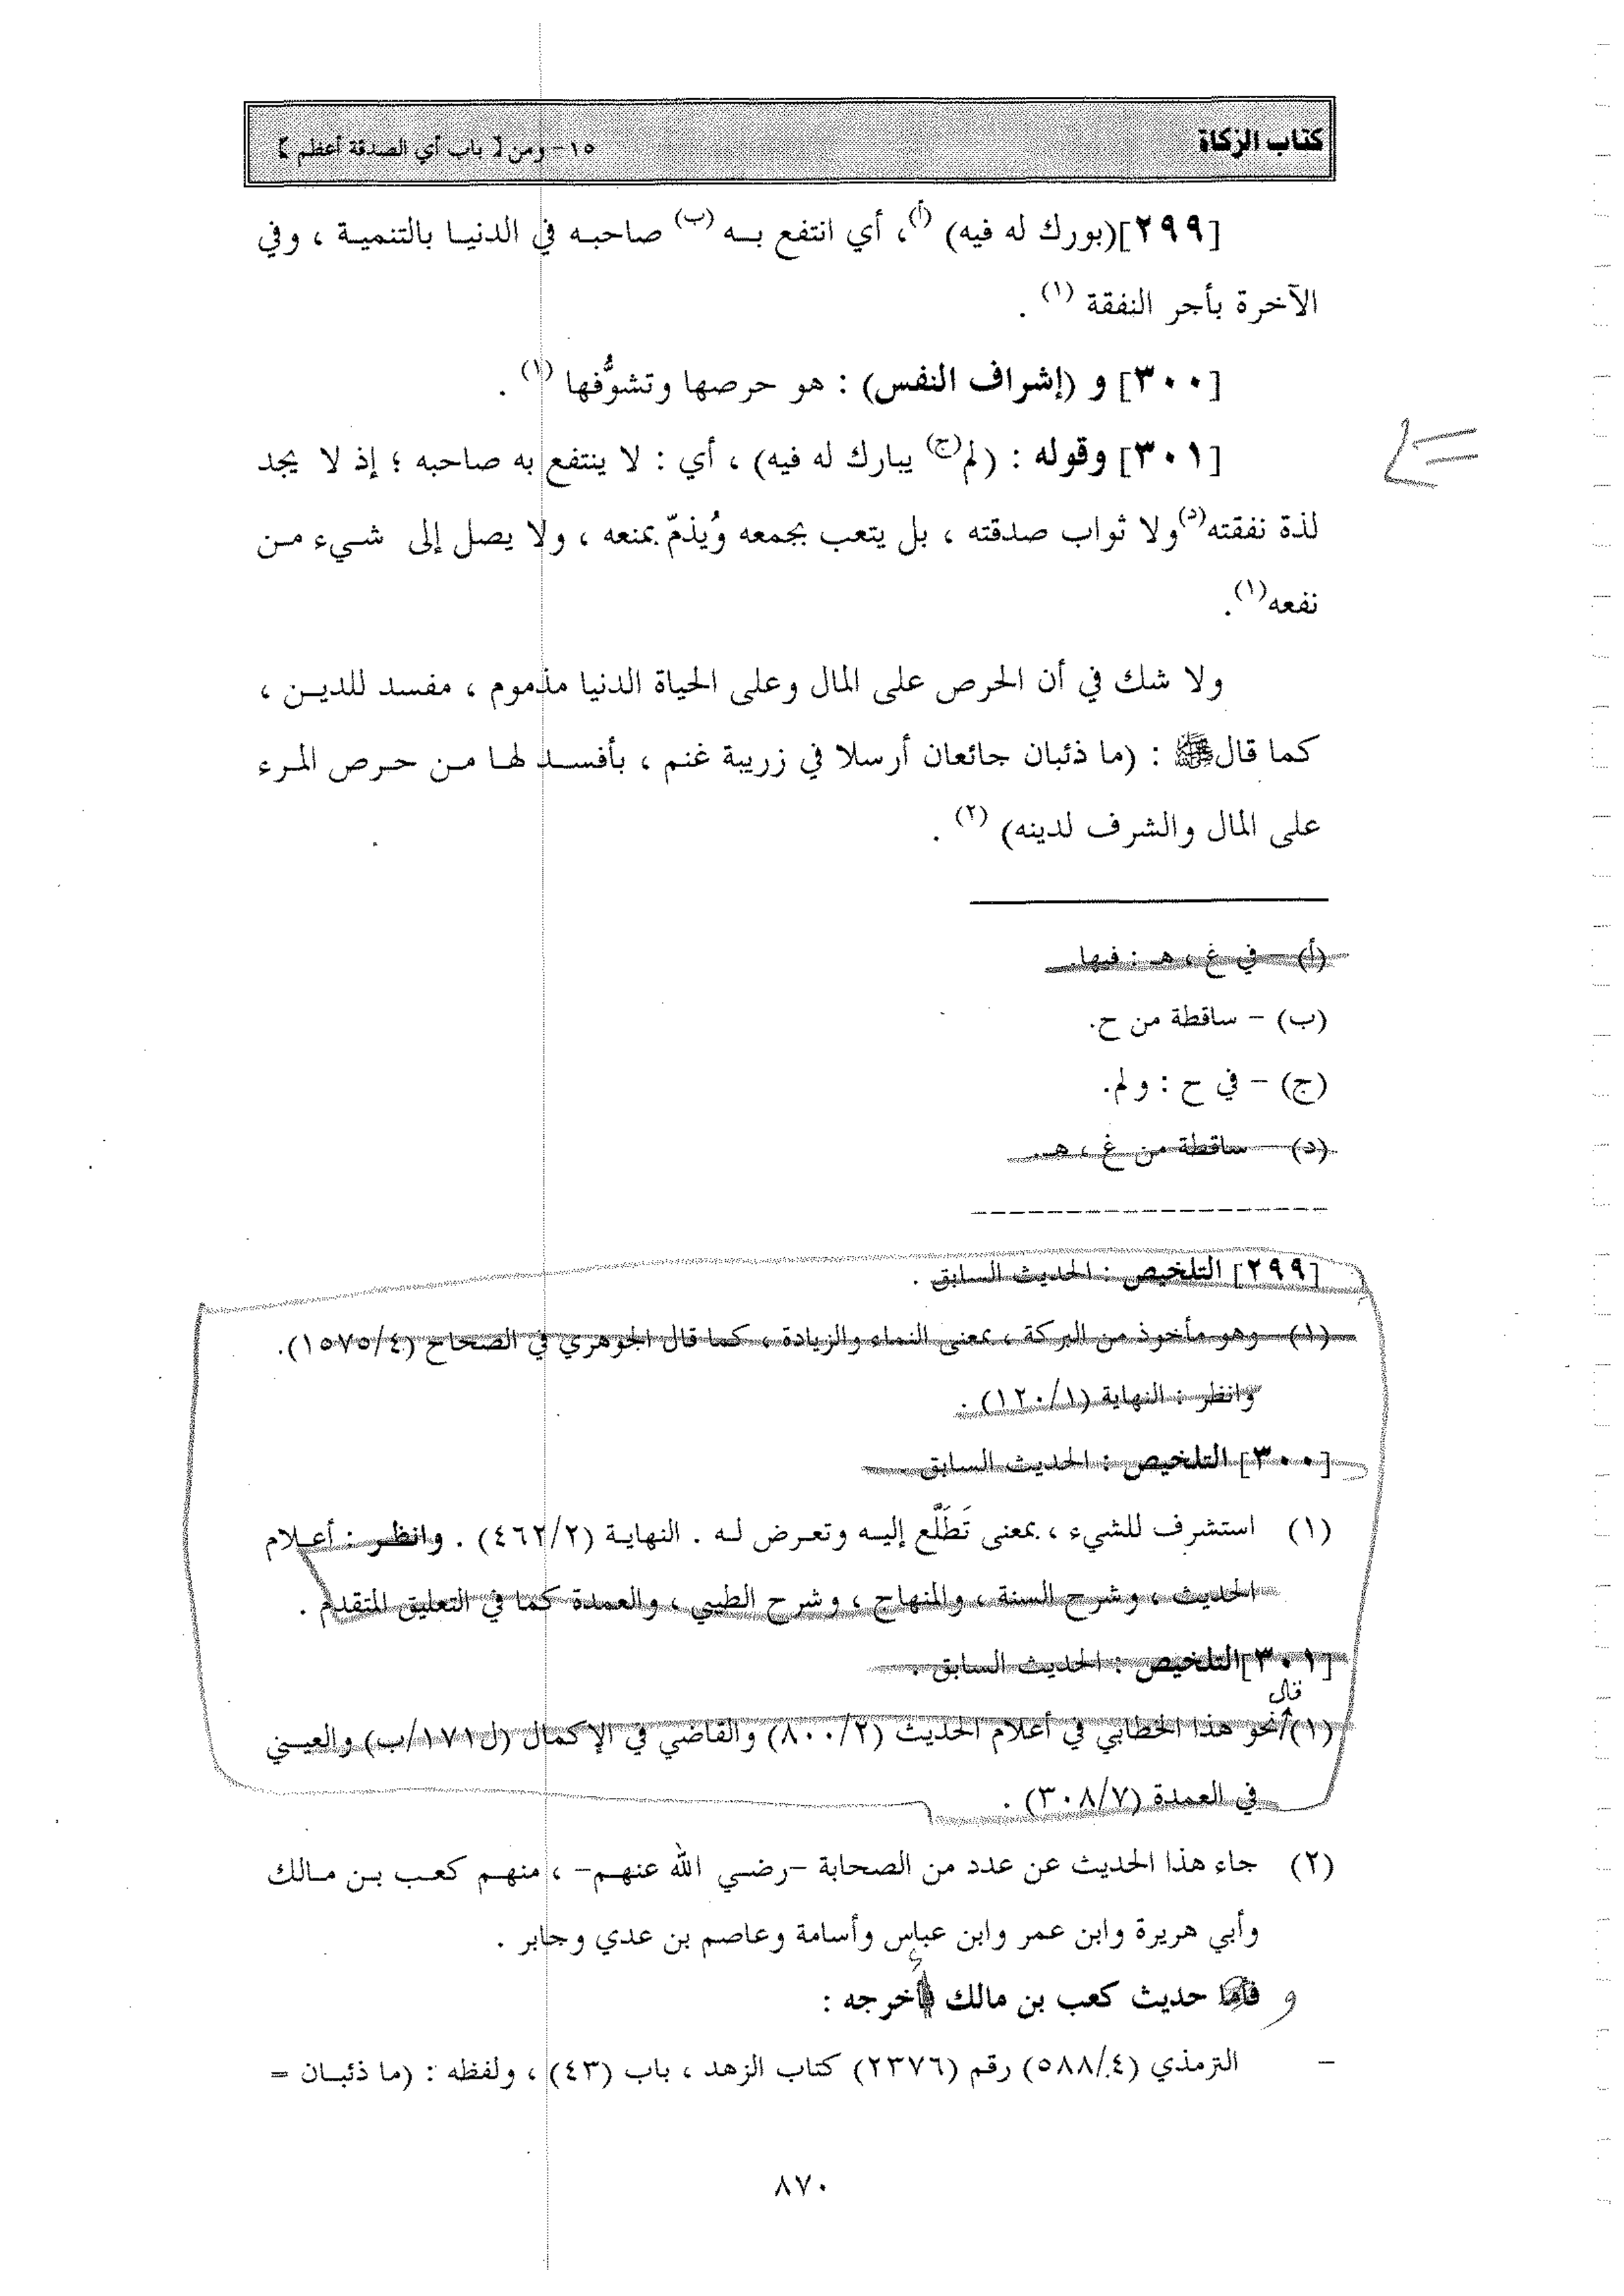 كتاب الزكاة
١٥- ومن [ باب أي الصدقة أعظم ]
[٢٩٩](بورك له فيه) (أ)، أي انتفع بـــه (ب) صاحبـه في الدنيـا بالتنميـة ، وفي
الآخرة بأجر النفقة (١) .
[٣٠٠] و (إشراف النفس) : هو حرصها وتشوُّفها (١) .
[٣٠١] وقوله : (لم(ج) يبارك له فيه) ، أي : لا ينتفع به صاحبه ؛ إذ لا يجد
لذة نفقته(د)ولا ثواب صدقته ، بل يتعب بجمعه وُيذمّ بمنعه ، ولا يصل إلى شـيء مـن
نفعه(١).
ولا شك في أن الحرص على المال وعلى الحياة الدنيا مذموم ، مفسد للديـن ،
كما قال ﷺ : (ما ذئبان جائعان أرسلا في زريبة غنم ، بأفسـد لهـا مـن حـرص المـرء
على المال والشرف لدينه) (٢) .
(أ) - في غ ، هـ : فيها.
(ب) - ساقطة من ح.
(ج) - في ح : ولم.
(د) - ساقطة من غ ، هـ.
[٢٩٩] التلخيص : الحديث السابق .
(١) وهو مأخوذ من البركة ، بمعنى النماء والزيادة ، كما قال الجوهري في الصحاح (١٥٧٥/٤).
وانظر : النهاية (١٢٠/١) .
[٣٠٠] التلخيص : الحديث السابق .
(١) استشرف للشيء ، بمعنى تَطَلَّع إليـه وتعـرض لـه . النهايـة (٤٦٢/٢) . وانظـر : أعـلام
الحديث ، وشرح السنة ، والمنهاج ، وشرح الطيبي ، والعمدة كما في التعليق المتقدم .
[٣٠١]التلخيص : الحديث السابق .
قال
(١) نحو هذا الخطابي في أعلام الحديث (٨٠٠/٢) والقاضي في الإكمال (ل١٧١/ب) والعيـني
في العمدة (٣٠٨/٧) .
(٢) جاء هذا الحديث عن عدد من الصحابة -رضـي الله عنهـم- ، منهـم كعـب بـن مـالك
وأبي هريرة وابن عمر وابن عباس وأسامة وعاصم بن عدي وجابر .
و فأما حديث كعب بن مالك فأخرجه :
- الترمذي (٥٨٨/٤) رقم (٢٣٧٦) كتاب الزهد ، باب (٤٣) ، ولفظه : (ما ذئبـان =
٨٧٠